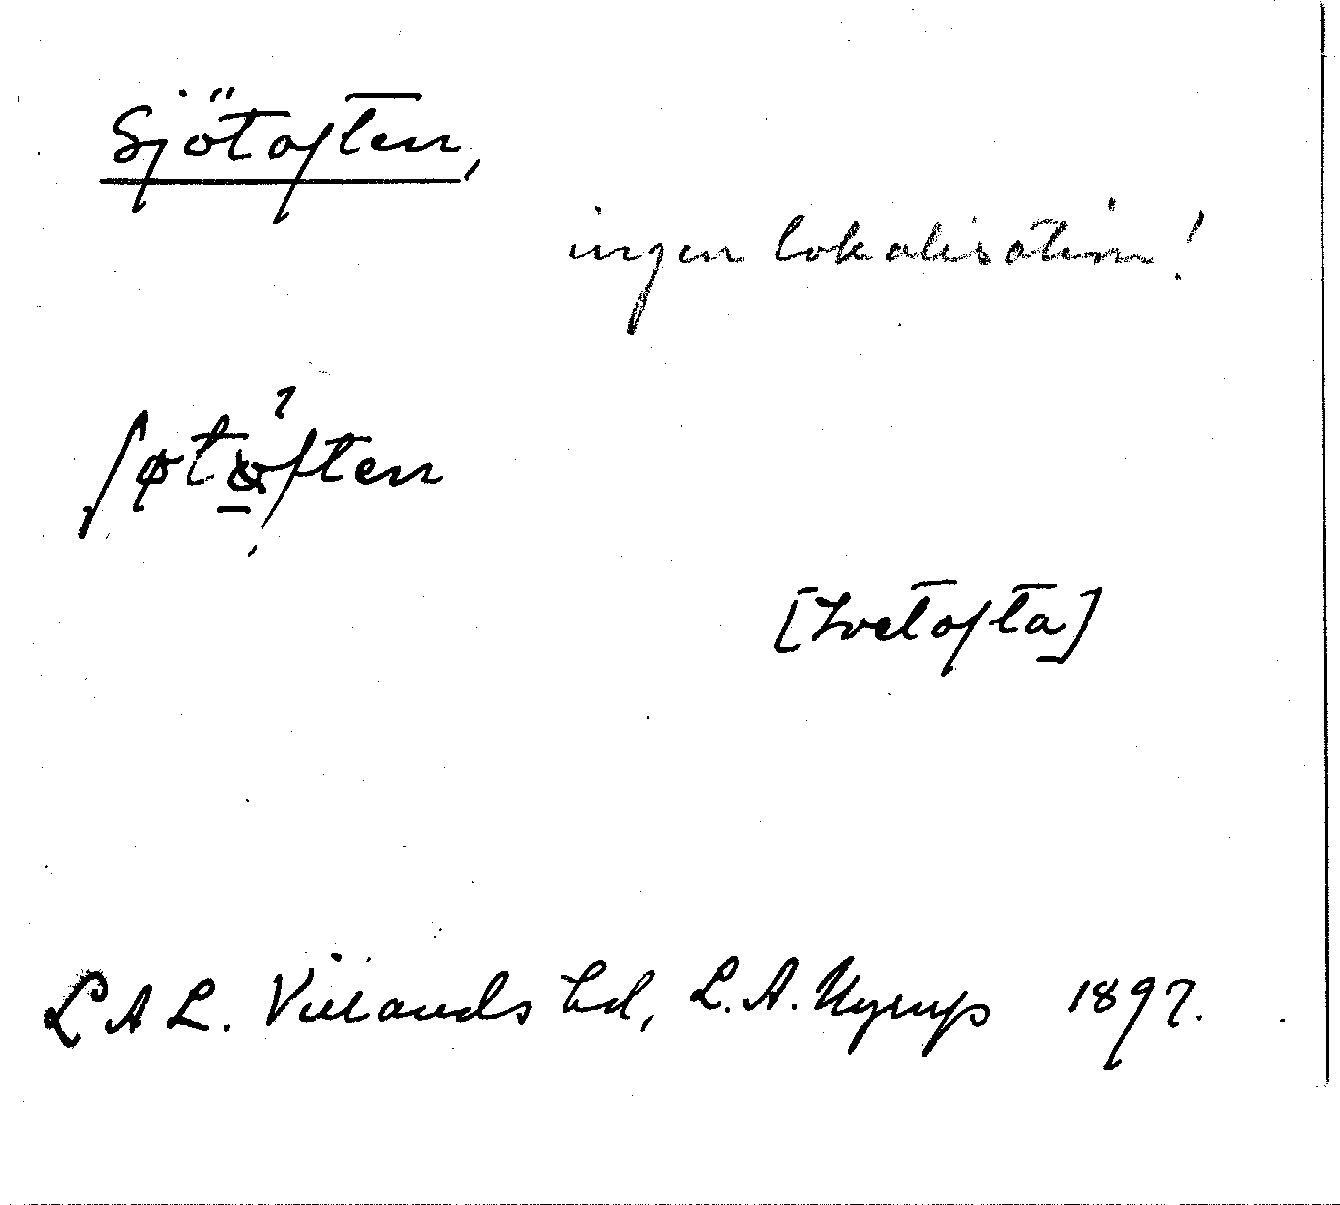 Sjötoften,
ingen lokalisation!
ʃøtoften
[Ivetofta]
LAL. Villands hd, L.A. Nyrup 1897.